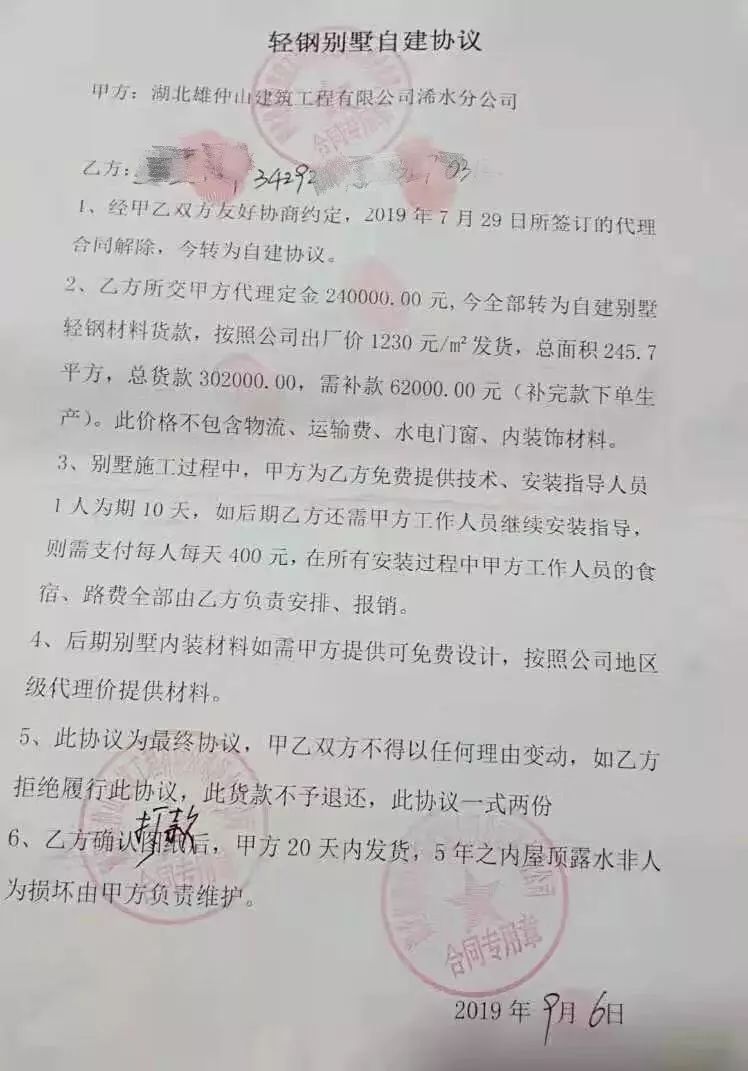 轻钢别墅自建协议
甲方：湖北雄仲山建筑工程有限公司浠水分公司
合同专用章
乙方： 34292 03
1、经甲乙双方友好协商约定，2019 年 7 月 29 日所签订的代理
合同解除，今转为自建协议。
2、乙方所交甲方代理定金 240000.00 元,今全部转为自建别墅
轻钢材料货款，按照公司出厂价 1230 元/㎡发货，总面积 245.7
平方，总货款 302000.00，需补款 62000.00 元（补完款下单生
产）。此价格不包含物流、运输费、水电门窗、内装饰材料。
3、别墅施工过程中，甲方为乙方免费提供技术、安装指导人员
1 人为期 10 天，如后期乙方还需甲方工作人员继续安装指导，
则需支付每人每天 400 元，在所有安装过程中甲方工作人员的食
宿、路费全部由乙方负责安排、报销。
4、后期别墅内装材料如需甲方提供可免费设计，按照公司地区
级代理价提供材料。
5、此协议为最终协议，甲乙双方不得以任何理由变动，如乙方
拒绝履行此协议，此货款不予退还，此协议一式两份
打款
6、乙方确认图纸后，甲方 20 天内发货，5 年之内屋顶露水非人
为损坏由甲方负责维护。
合同专用章
合同专用章
2019 年 9月 6日